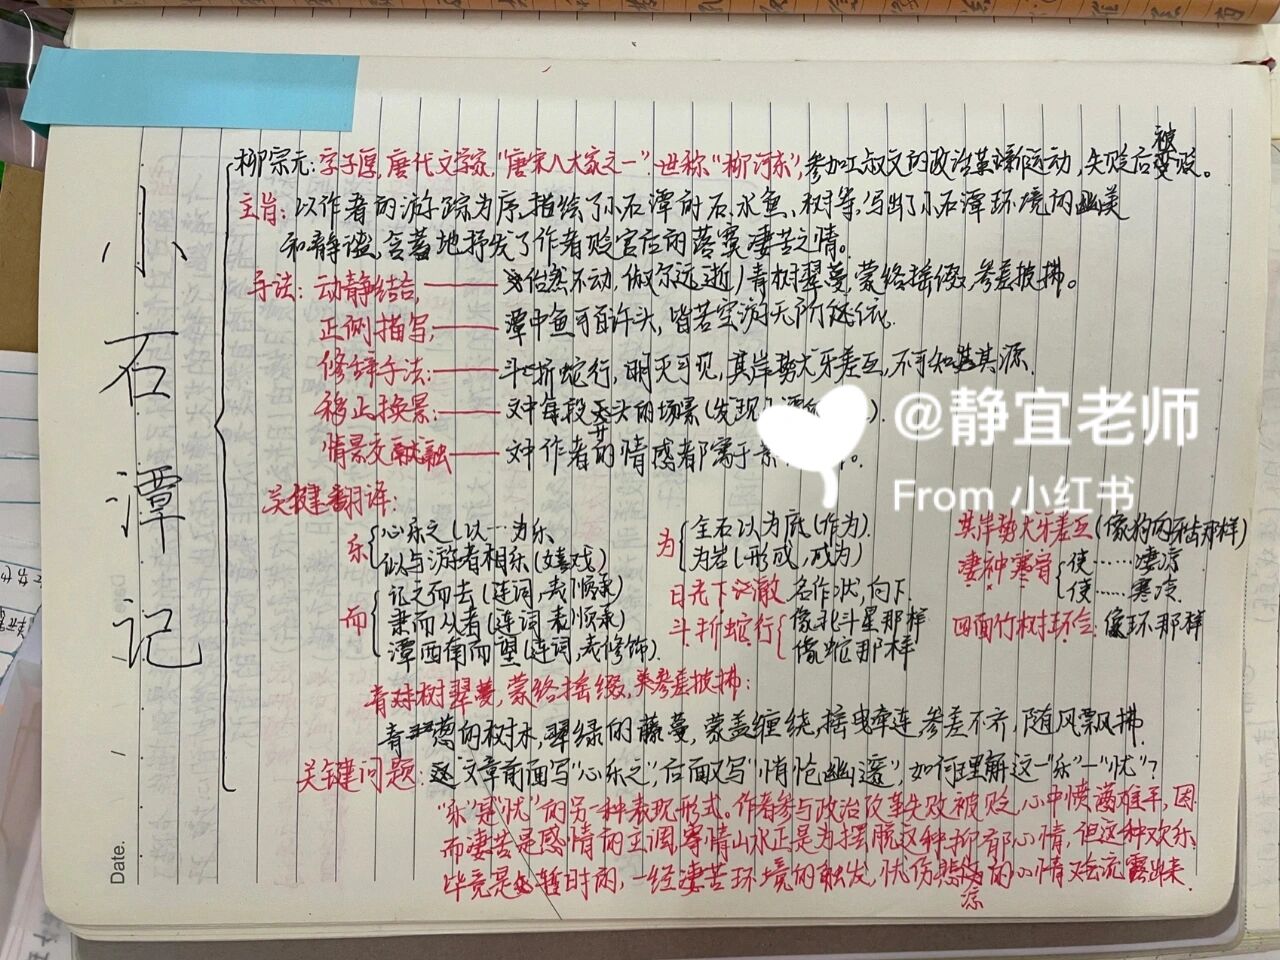 小石潭记
柳宗元：字子厚，唐代文学家，“唐宋八大家之一”.世称“柳河东”，参加王叔文的政治革新运动，失败后被贬。
主旨：以作者的游踪为序，描绘了小石潭的石、水鱼、树等，写出了小石潭环境的幽美
和静谧，含蓄地抒发了作者贬官后的落寞凄苦之情。
手法：动静结合，——佁然不动，俶尔远逝）青树翠蔓，蒙络摇缀，参差披拂。
正侧描写，——潭中鱼可百许头，皆若空游无所依.
修辞手法：——斗折蛇行，明灭可见，其岸势犬牙差互，不可知其源.
移步换景：——文中每段开头的场景（发现
情景交融——文中作者的情感都寓于景
关键翻译：
乐 心乐之（以…为乐
似与游者相乐（嬉戏）
而 记之而去（连词，表顺承
隶而从者（连词 表顺承）
潭西南而望（连词，表修饰）.
为 全石以为底（作为）.
为岩（形成，成为）
日光下澈 名作状，向下.
斗折蛇行 像北斗星那样
像蛇那样
其岸势犬牙差互（像狗的牙齿那样）
凄神寒骨 使……凄凉
使……寒凉
四面竹树环合：像环那样
青树翠蔓，蒙络摇缀，参差披拂：
青葱的树木，翠绿的藤蔓，蒙盖缠绕，摇曳牵连，参差不齐，随风飘拂.
关键问题：文章前面写“心乐之”，后面又写“悄怆幽邃”，如何理解这一“乐”一“忧”？
“乐”是“忧”的另一种表现形式。作者参与政治改革失败被贬，心中愤懑难平，因
而凄苦是感情的主调，寄情山水正是为摆脱这种抑郁心情，但这种欢乐
毕竟是暂时的，一经凄苦环境的触发，忧伤悲凉的心情又会流露出来.
Date.
@静宜老师
From 小红书